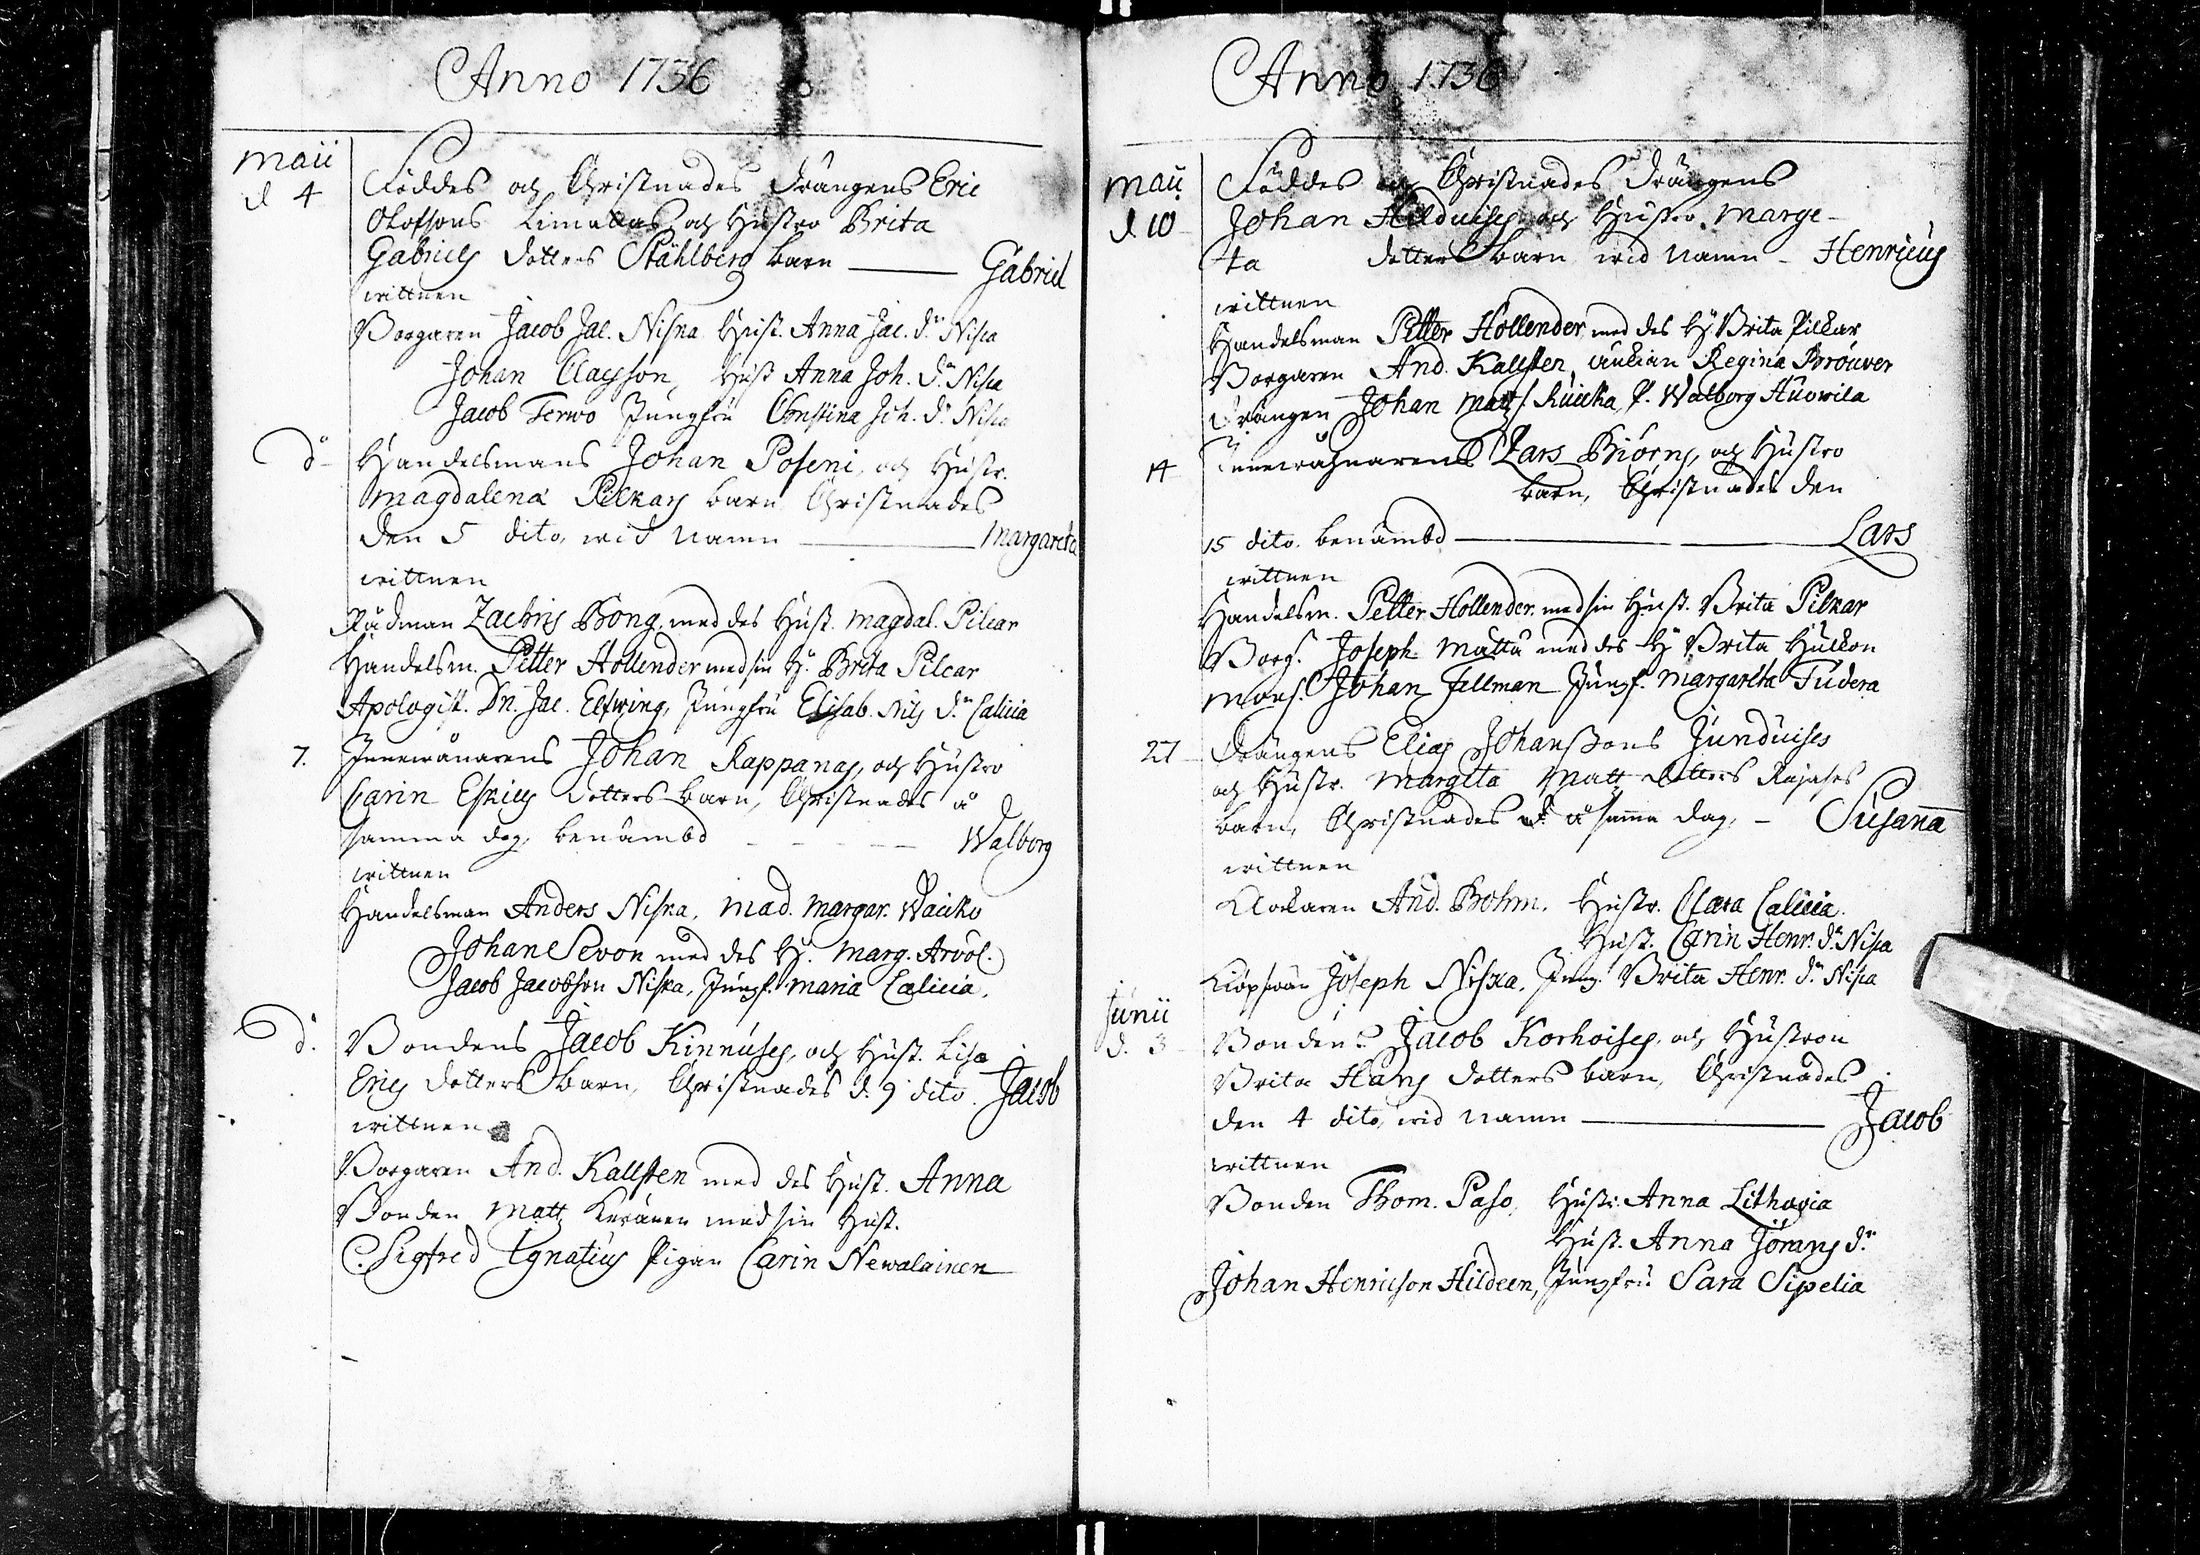 Anno 1736
Maii
d 4
Föddes och Christnades Drängens Eric
Olofsons Limattas och Hustro Brita
Gabriels dotters Ståhlberg barn — Gabriel
wittnen
Borgaren Jacob Jac. Niska Hust. Anna Jac. dr Nisca
Johan Clayson, Hust Anna Joh. dr Nisca
Jacob Terwo Jungfru Christina Joh. dr Nisca
do Handelsmans Johan Poseni, och Hustr.
Magdalena Pilkars barn Christnades
den 5 dito, wid namn — Margareta
wittnen
Rådman Zachris Bong, med des Hust. Magdal. Pilcar
Handelsm. Petter Hollender med sin H. Brita Pilcar
Apologist. Dn. Jac. Elfwing, Jungfru Elisab. Nils dr Calicia
7. Johan Kappanas, och Hustro
Carin Eskils dotters barn, Christnades å
samma dag, benämbd — Walborg
wittnen
Handelsman Anders Niska, Mad. Margar. Waicko
Johan Sevon med des H. Marg. Arvol.
Jacob Jacobson Niska, Jungf. Maria Calicia.
do. Bondens Jacob Kinnuses, och Hust. Lisa
Erics dotters barn, Christnades d. 9 dito. Jacob
wittnen
Borgaren And. Kallsten med des Hust. Anna
Bonden Matt Keränen med sin Hust.
C. Sigfred Ignatius Pigan Carin Newalainen
Anno 1736
Maii
d 10
Föddes och Christnades Drängens
Johan Hilduises och Hustro Marge-
ta dotters barn wid namn - Henricus
wittnen
Handelsman Petter Hollender, med des H. Brita Pilkar
Borgaren And. Kallsten, Regina Brouver
Drängen Johan Matts. Ruicka, P. Walborg Huowila
14 Lars Biörns, och Hustro
barn, Christnades den
15 dito. benämbd — Lars
wittnen
Handelsm. Petter Hollender. med sin Hust. Brita Pilkar
Borg. Joseph Matta med des H Brita Hulkon
Mons. Johan Fellman Jungf. Margareta Tudera
27 Drängens Elias Johanssons Junduises
och Hustr. Margeta Matts dotters Rajases
barn, Christnades å samma dag, - Susana
wittnen
Klockaren And. Bohm. Hustr. Clara Calicia.
Hust. Carin Henr. dr Nisca
Joseph Niska, Jung. Brita Henr. dr Nisca
Junii
d. 3 Bondens Jacob Korhoises, och Hustron
Brita Hans dotters barn, Christnades
den 4 dito, wid namn — Jacob
wittnen
Bonden Thom. Paso, Hustr. Anna Lithovia
Hust. Anna Jörans dr
Johan Henricson Hildeen, Jungfru Sara Sipelia